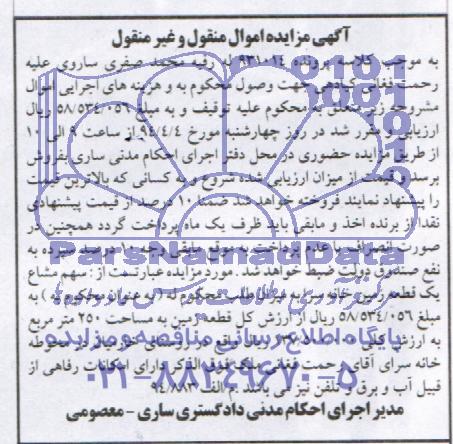 آگهی مزایده اموال منقول و غیر منقول
به موجب کلاسه پرونده ۹۳۱۰۱۴ له رقیه محمد صفری ساروی علیه
رحمت فغانی جهت وصول محکوم به و هزینه های اجرایی اموال
مشروحه زیر متعلق به محکوم علیه توقیف و به مبلغ ۵۸/۵۳۴/۰۵۶ ریال
ارزیابی و مقرر شد در روز چهارشنبه مورخ ۹۴/۴/۴ از ساعت ۹ الی ۱۰
از طریق مزایده حضوری در محل دفتر اجرای احکام مدنی ساری بفروش
برسد و قیمت از میزان ارزیابی شده شروع و به کسانی که بالاترین قیمت
را پیشنهاد نمایند فروخته خواهد شد ضمنا ۱۰ درصد از قیمت پیشنهادی
نقدا از برنده اخذ و مابقی باید ظرف یک ماه پرداخت گردد همچنین در
صورت انصراف یا عدم پرداخت به موقع مابقی وجه ۱۰ درصد سپرده به
نفع صندوق دولت ضبط خواهد شد. مورد مزایده عبارتست از: سهم مشاع
یک قطعه زمین خانه سرا به میزان طلب محکوم له (به عنوان محکوم به) به
مبلغ ۵۸/۵۳۴/۰۵۶ ریال از ارزش کل قطعه زمین به مساحت ۲۵۰ متر مربع
به ارزش کلی ریال واقع در محوطه
خانه سرای آقای رحمت فغانی ملک فوق الذکر دارای امکانات رفاهی از
قبیل آب و برق و تلفن نیز می باشد. م الف ۹۴/۸۸۳
مدیر اجرای احکام مدنی دادگستری ساری - معصومی
ParsNamadData
پایگاه اطلاع رسانی مناقصه و مزایده
۰۲۱-۸۸۳۴۹۶۷۰-۵